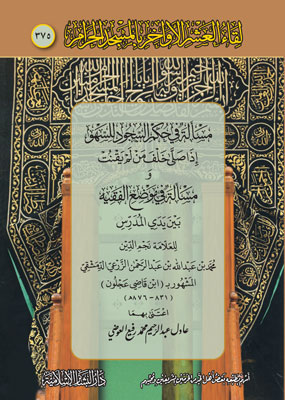 لقاء العشر الأواخر بالمسجد الحرام
(٣٧٥)
مسألة في حكم السجود للسهو
إذا صلى خلف من لم يقنت
و
مسألة في موضع الفقيه
بين يدي المدرس
للعلامة نجم الدين
محمد بن عبدالله بن عبدالرحمن الزرعي الدمشقي
المشهور بـ (ابن قاضي عجلون)
(٨٣١ - ٨٧٦هـ)
اعتنى بهما
عادل عبدالرحيم محمد رفيع العوضي
دار البشائر الإسلامية